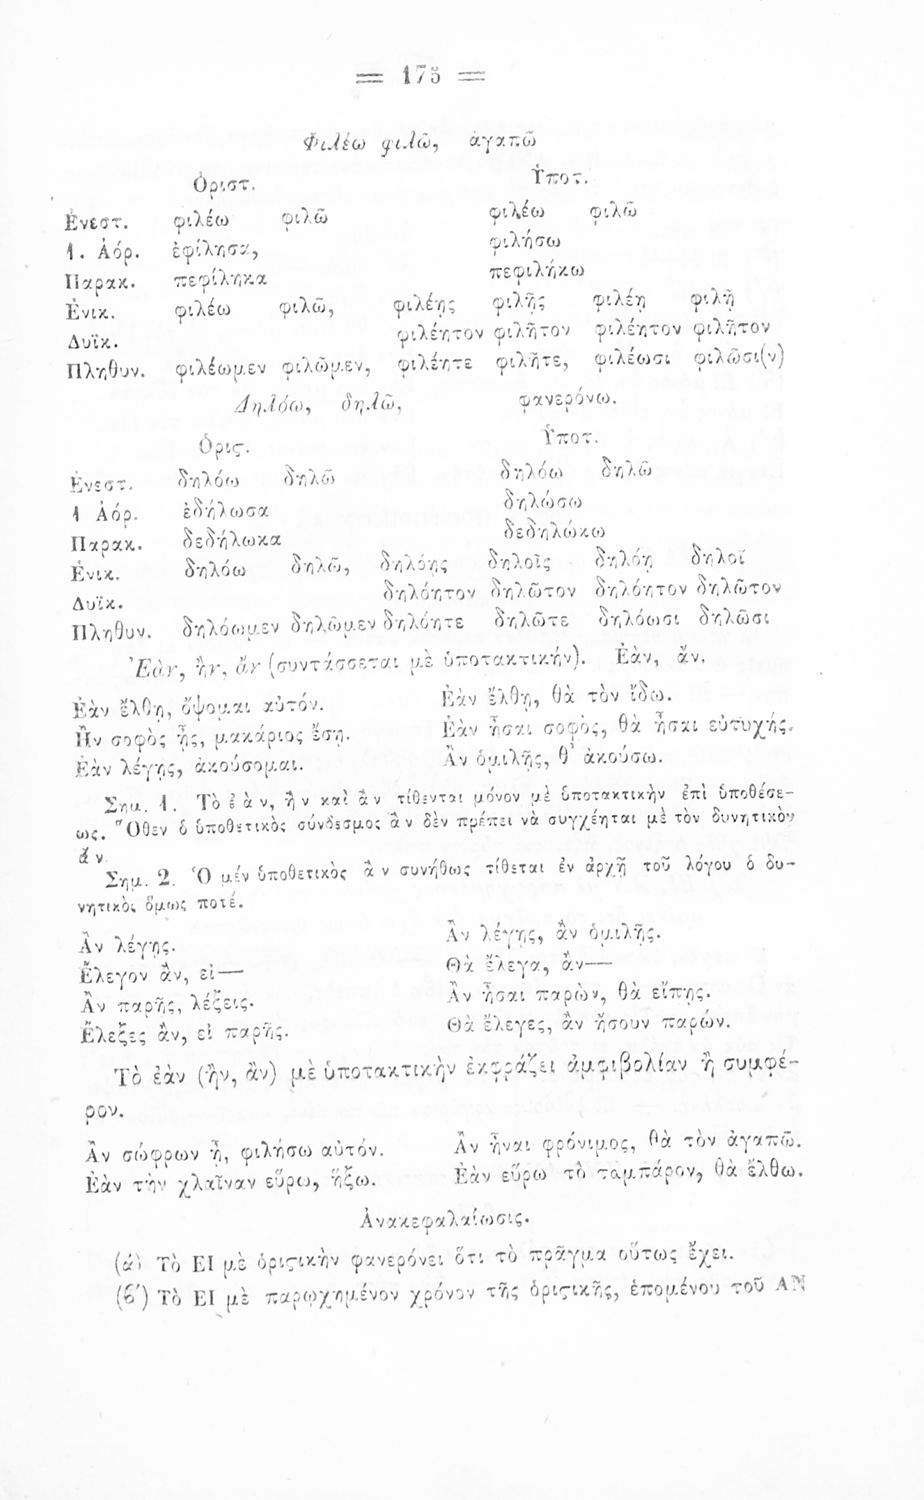 = 175 =
Φιλέω φιλῶ, ἀγαπῶ
Ὁριστ. Ὑποτ.
Ἐνεστ. φιλέω φιλῶ φιλέω φιλῶ
1. Ἀόρ. ἐφίλησα, φιλήσω
Παρακ. πεφίληκα πεφιλήκω
Ἑνικ. φιλέω φιλῶ, φιλέῃς φιλῇς φιλέῃ φιλῇ
Δυϊκ. φιλέητον φιλῆτον φιλέητον φιλῆτον
Πληθυν. φιλέωμεν φιλῶμεν, φιλέητε φιλῆτε, φιλέωσι φιλῶσι(ν)
Δηλόω, δηλῶ, φανερόνω.
Ὁριϛ. Ὑποτ.
Ἐνεστ. δηλόω δηλῶ δηλόω δηλῶ
1 Ἀόρ. ἐδήλωσα δηλώσω
Παρακ. δεδήλωκα δεδηλώκω
Ἑνικ. δηλόω δηλῶ, δηλόῃς δηλοῖς δηλόῃ δηλοῖ
Δυϊκ. δηλόητον δηλῶτον δηλόητον δηλῶτον
Πληθυν. δηλόωμεν δηλῶμεν δηλόητε δηλῶτε δηλόωσι δηλῶσι
Ἐὰν, ἢν, ἂν (συντάσσεται μὲ ὑποτακτικήν). Ἐὰν, ἄν.
Ἐὰν ἔλθῃ, ὄψομαι αὐτόν. Ἐὰν ἔλθῃ, θὰ τὸν ἴδω.
Ἢν σοφὸς ᾖς, μακάριος ἔσῃ. Ἐὰν ἦσαι σοφὸς, θὰ ἦσαι εὐτυχής.
Ἐὰν λέγῃς, ἀκούσομαι. Ἂν ὁμιλῇς, θ' ἀκούσω.
Σημ. 1. Τὸ ἐὰν, ἢν καὶ ἂν τίθενται μόνον μὲ ὑποτακτικὴν ἐπὶ ὑποθέσε-
ως. Ὅθεν ὁ ὑποθετικὸς σύνδεσμος ἂν δὲν πρέπει νὰ συγχέηται μὲ τὸν δυνητικὸν
ἄν
Σημ. 2. Ὁ μέν ὑποθετικὸς ἂν συνήθως τίθεται ἐν ἀρχῇ τοῦ λόγου ὁ δυ-
νητικὸς ὅμως ποτέ.
Ἂν λέγῃς. Ἂν λέγῃς, ἂν ὁμιλῇς.
Ἔλεγον ἂν, εἰ— Θὰ ἔλεγα, ἂν—
Ἂν παρῇς, λέξεις. Ἂν ἦσαι παρὼν, θὰ εἴπῃς.
Ἔλεξες ἂν, εἰ παρῇς. Θὰ ἔλεγες, ἂν ἤσουν παρών.
Τὸ ἐὰν (ἢν, ἂν) μὲ ὑποτακτικὴν ἐκφράζει ἀμφιβολίαν ἢ συμφέ-
ρον.
Ἂν σώφρων ᾖ, φιλήσω αὐτόν. Ἂν ἦναι φρόνιμος, θὰ τὸν ἀγαπῶ.
Ἐὰν τὴν χλαῖναν εὕρω, ἥξω. Ἐὰν εὕρω τὸ ταμπάρον, θὰ ἔλθω.
Ἀνακεφαλαίωσις.
(ά) Τὸ ΕΙ μὲ ὁριϛικὴν φανερόνει ὅτι τὸ πρᾶγμα οὕτως ἔχει.
(β') Τὸ ΕΙ μὲ παρῳχημένον χρόνον τῆς ὁριϛικῆς, ἑπομένου τοῦ ΑΝ